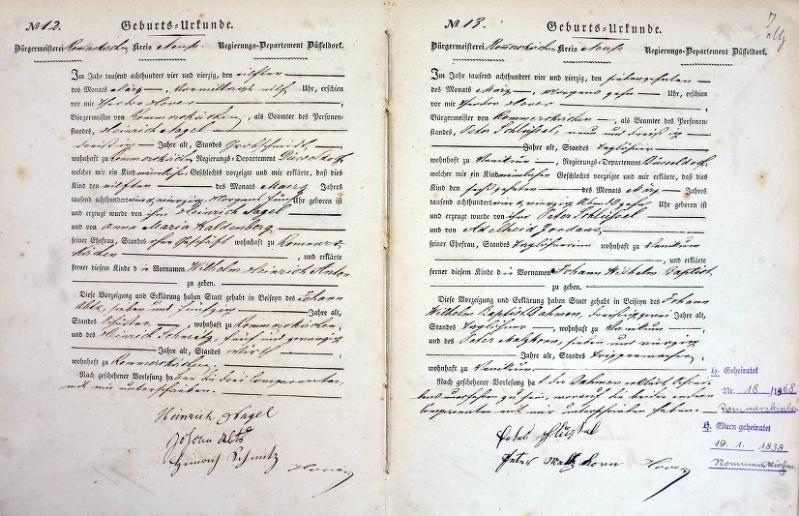 No 12. Geburts-Urkunde.
Bürgermeisterei Rommerskirchen Kreis Neuss Regierungs-Departement Düsseldorf.
Im Jahr tausend achthundert vier und vierzig, den eilften
des Monats März, Vormittags elf Uhr, erschien
vor mir
Bürgermeister von Rommerskirchen, als Beamter des Personen-
standes, Heinrich Nagel
dreißig Jahre alt, Standes
wohnhaft zu Rommerskirchen Regierungs-Departement Düsseldorf
welcher mir ein Kind männlichen Geschlechts vorzeigte und mir erklärte, daß dies
Kind den eilften des Monats März Jahres
tausend achthundert vier und vierzig, Morgens fünf Uhr geboren ist
und erzeugt wurde von ihm Heinrich Nagel
und von Anna Maria Kaldenberg
seiner Ehefrau, Standes ohne Geschäft wohnhaft zu Rommers-
kirchen und erklärte
ferner diesem Kinde die Vornamen Wilhelm Heinrich Anton
zu geben.
Diese Vorzeigung und Erklärung haben Statt gehabt in Beiseyn des Johann
sieben und fünfzig Jahre alt,
Standes Schuster, wohnhaft zu Rommerskirchen
und des Heinrich Schmitz, fünf und zwanzig
Jahre alt, Standes Wirth
wohnhaft zu Rommerskirchen.
Nach geschehener Vorlesung haben die drei Comparenten
mit mir unterschrieben.
Heinrich Nagel
Johann
Heinrich Schmitz
No 13. Geburts-Urkunde.
Bürgermeisterei Rommerskirchen Kreis Neuss Regierungs-Departement Düsseldorf.
Im Jahr tausend achthundert vier und vierzig, den siebenzehnten
des Monats März, Morgens zehn Uhr, erschien
vor mir
Bürgermeister von Rommerskirchen, als Beamter des Personen-
standes, Peter Schlüssel, neun und dreißig
Jahre alt, Standes Taglöhner
wohnhaft zu Vanikum, Regierungs-Departement Düsseldorf,
welcher mir ein Kind männlichen Geschlechts vorzeigte und mir erklärte, daß dies
Kind den sechszehnten des Monats März Jahres
tausend achthundert vier und vierzig Abends zehn Uhr geboren ist
und erzeugt wurde von ihm Peter Schlüssel
und von Adelheid Jordens,
seiner Ehefrau, Standes Taglöhnerin wohnhaft zu Vanikum
und erklärte
ferner diesem Kinde die Vornamen Johann Wilhelm Baptist
zu geben.
Diese Vorzeigung und Erklärung haben Statt gehabt in Beiseyn des Johann
Wilhelm Baptist Dahmen, Jahre alt,
Standes Taglöhner, wohnhaft zu Vanikum
und des Peter Malzkorn, sieben und vierzig
Jahre alt, Standes
wohnhaft zu Vanikum.
Nach geschehener Vorlesung hat der Dahmen erklärt Schrei-
bens unerfahren zu sein, worauf die beiden andern
Comparenten mit mir unterschrieben haben.
Peter Schlüssel
Peter Malzkorn
H. Geheiratet
Nr. 18 / 1868
Rommerskirchen
H. Eltern geheiratet
19. 1. 1838
Rommerskirchen